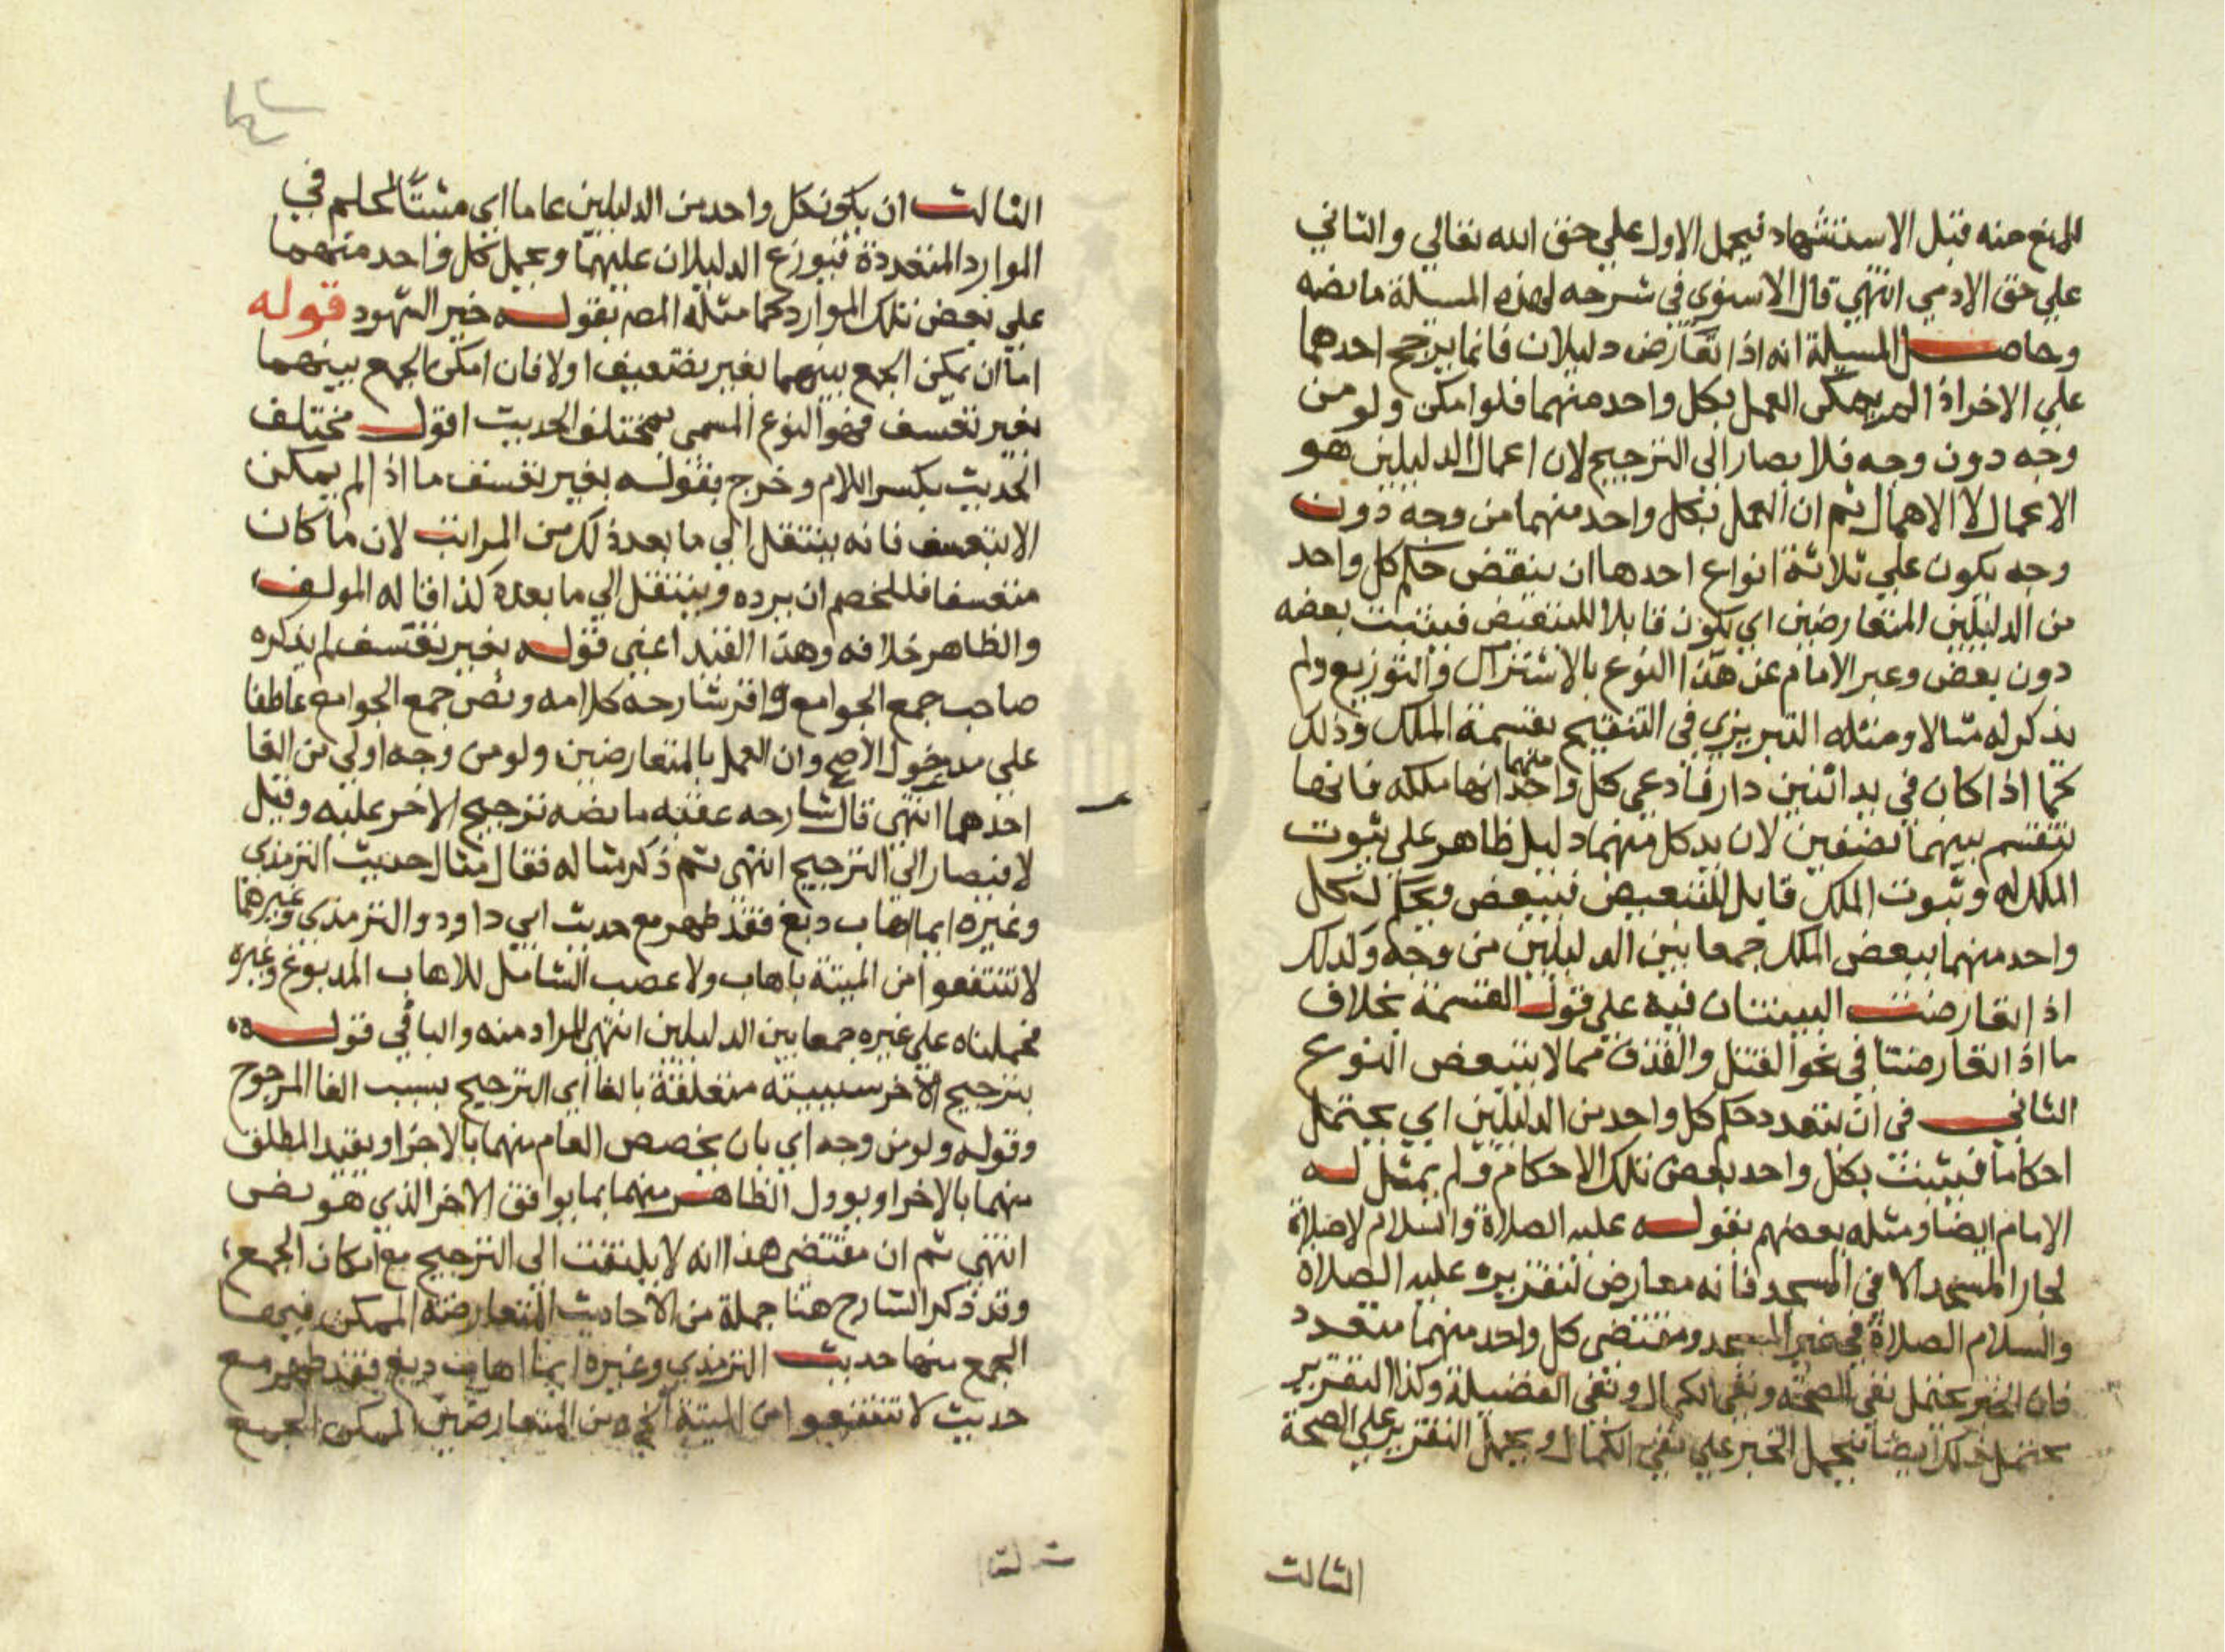 للمنع منه قبل الاستشهاد فيحمل الاول علي حق الله تعالي والثاني
علي حق الادمي انتهي قال الاسنوي في شرحه لهذه المسيلة ما نصه
وحاصل المسيلة انه اذا تعارض دليلان فانما يرجح احدهما
علي الاخر اذا لم يمكن العمل بكل واحد منهما فلو امكن ولو من
وجه دون وجه فلا يصار الي الترجيح لان اعمال الدليلين هو
الاعمال لا الاهمال ثم ان العمل بكل واحد منهما من وجه دون
وجه يكون علي ثلاثة انواع احدها ان يتبعض حكم كل واحد
من الدليلين المتعارضين اي يكون قابلا للتبعيض فيثبت بعضه
دون بعض وعبر الامام عن هذا النوع بالاشتراك والتوزيع ولم
يذكر له مثالا ومثله التبريزي في التنقيح بقسمة الملك وذلك
كما اذا كان في يد اثنين دار فادعي كل واحد منهما انها ملكه فانها
تقسم بينهما نصفين لان يد كل منهما دليل ظاهر علي ثبوت
الملك له وثبوت الملك قابل للتبعيض فيبعض ويحكم لكل
واحد منهما ببعض الملك جمعا بين الدليلين من وجه وكذلك
اذا تعارضت البينتان فيه علي قول القسمة بخلاف
ما اذا تعارضتا في نحو القتل والقذف مما لا يتبعض النوع
الثاني في ان يتعدد حكم كل واحد من الدليلين اي يحتمل
احكاما فيثبت بكل واحد بعض تلك الاحكام ولم يمثل له
الامام ايضا ومثله بعضهم بقوله عليه الصلاة والسلام لا صلاة
لجار المسجد الا في المسجد فانه معارض لتقريره عليه الصلاة
والسلام الصلاة في غير المسجد ومقتضي كل واحد منهما متعدد
فان الخبر يحتمل نفي الصحة ونفي الكمال ونفي الفضيلة وكذا التقرير
يحتمل ذلك ايضا فيحمل الخبر علي نفي الكمال ويحمل التقرير علي الصحة
الثالث
الثالث ان يكون كل واحد من الدليلين عاما اي مثبتا لحكم في
الموارد المتعددة فيوزع الدليلان عليهما ويحمل كل واحد منهما
علي بعض تلك الموارد كما مثله المص بقوله خير الشهود قوله
اما ان يمكن الجمع بينهما بغير تضعيف اولا فان امكن الجمع بينهما
بغير تعسف فهو النوع المسمي بمختلف الحديث اقول مختلف
الحديث بكسر اللام وخرج بقوله بغير تعسف ما اذا لم يمكن
الا بتعسف فانه ينتقل الي ما بعد ذلك من المراتب لان ما كان
متعسفا فللخصم ان يرده وينتقل الي ما بعده كذا قاله المولف
والظاهر خلافه وهذا القيد اعني قوله بغير تعسف لم يذكره
صاحب جمع الجوامع واقر شارحه كلامه ونص جمع الجوامع عاطفا
علي مدخول الاصح وان العمل بالمتعارضين ولو من وجه اولي من الغا
احدهما انتهي قال شارحه عقبه ما نصه ترجيح الاخر عليه وقيل
لا فيصار الي الترجيح انتهي ثم ذكر مثاله فقال مثال حديث الترمذي
وغيره ايما اهاب دبغ فقد طهر مع حديث ابي داود والترمذي وغيرهما
لا تنتفعوا من الميتة باهاب ولا عصب الشامل للاهاب المدبوغ وغيره
فحملناه علي غيره جمعا بين الدليلين انتهي المراد منه والبا في قوله
بترجيح الاخر سببية متعلقة بالغا اي الترجيح بسبب الغا المرجوح
وقوله ولو من وجه اي بان يخصص العام منهما بالاخر او يقيد المطلق
منهما بالاخر او يوول الظاهر منهما بما يوافق الاخر الذي هو نص
انتهي ثم ان مقتضي هذا انه لا يلتفت الي الترجيح مع امكان الجمع
وقد ذكر الشارح هنا جملة من الاحاديث المتعارضة الممكن فيها
الجمع منها حديث الترمذي وغيره ايما اهاب دبغ فقد طهر مع
حديث لا تنتفعوا من الميتة الخ من المتعارضين الممكن الجمع